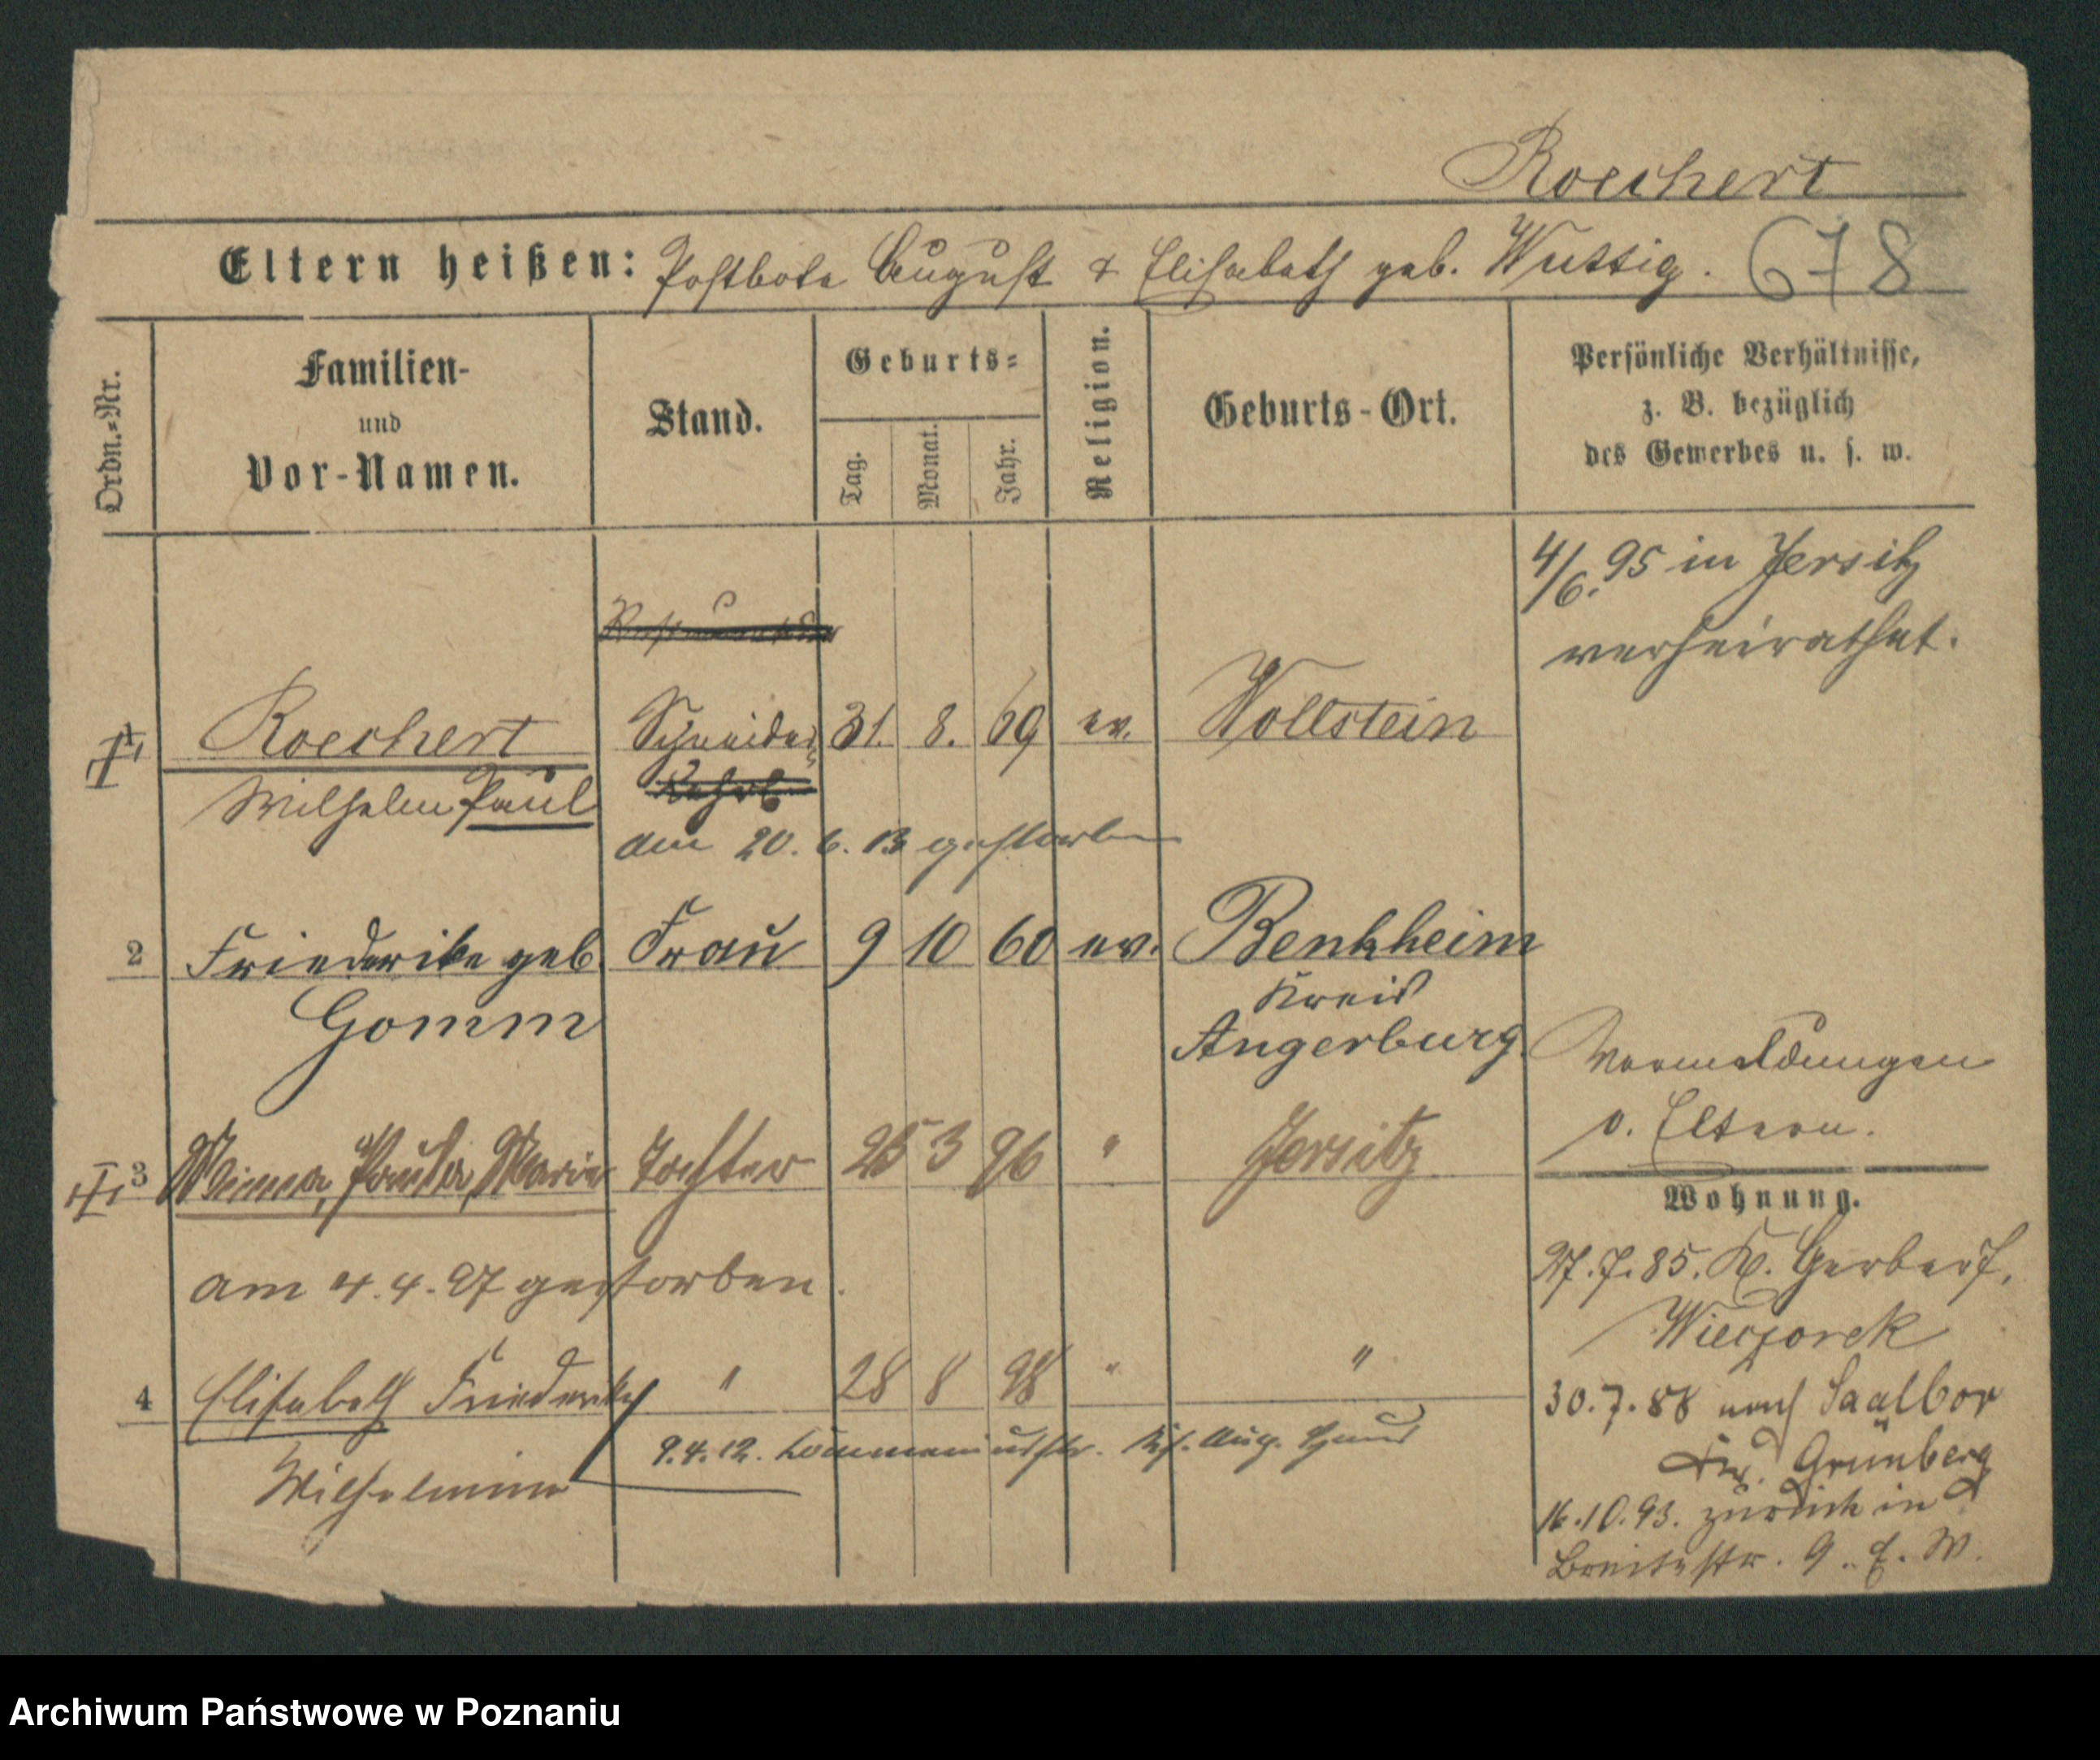 Roechert
Eltern heißen: Postbote August & Elisabeth geb. Wuttig. 678
Ordn.-Nr.
Familien-
und
Vor-Namen.
Stand.
Geburts-
Tag.
Monat.
Jahr.
Religion.
Geburts-Ort.
Persönliche Verhältnisse,
z. B. bezüglich
des Gewerbes u. s. w.
4/6. 95 in Jersitz
verheirathet.
1 Roechert Schneider 31. 8. 69 ev. Wollstein
Wilhelm Paul
am 20. 6. 13 gestorben
2 Friederike geb. Frau 9 10 60 ev. Benkheim
Gomm Kreis
Angerburg
Vormeldungen
v. Eltern.
3 Minna, Paula, Marie Tochter 25 3 96 " Jersitz
Wohnung.
am 4. 4. 97 gestorben.
27. 7. 85. Gr. Gerberst.
Wieczorek
4 Elisabeth Friederike " 28 8 98 " "
Wilhelmine
9. 4. 12.
30. 7. 88 nach Saalbor
Grünberg
16. 10. 93. zurück in
Breitestr. 9. E. W.
Archiwum Państwowe w Poznaniu